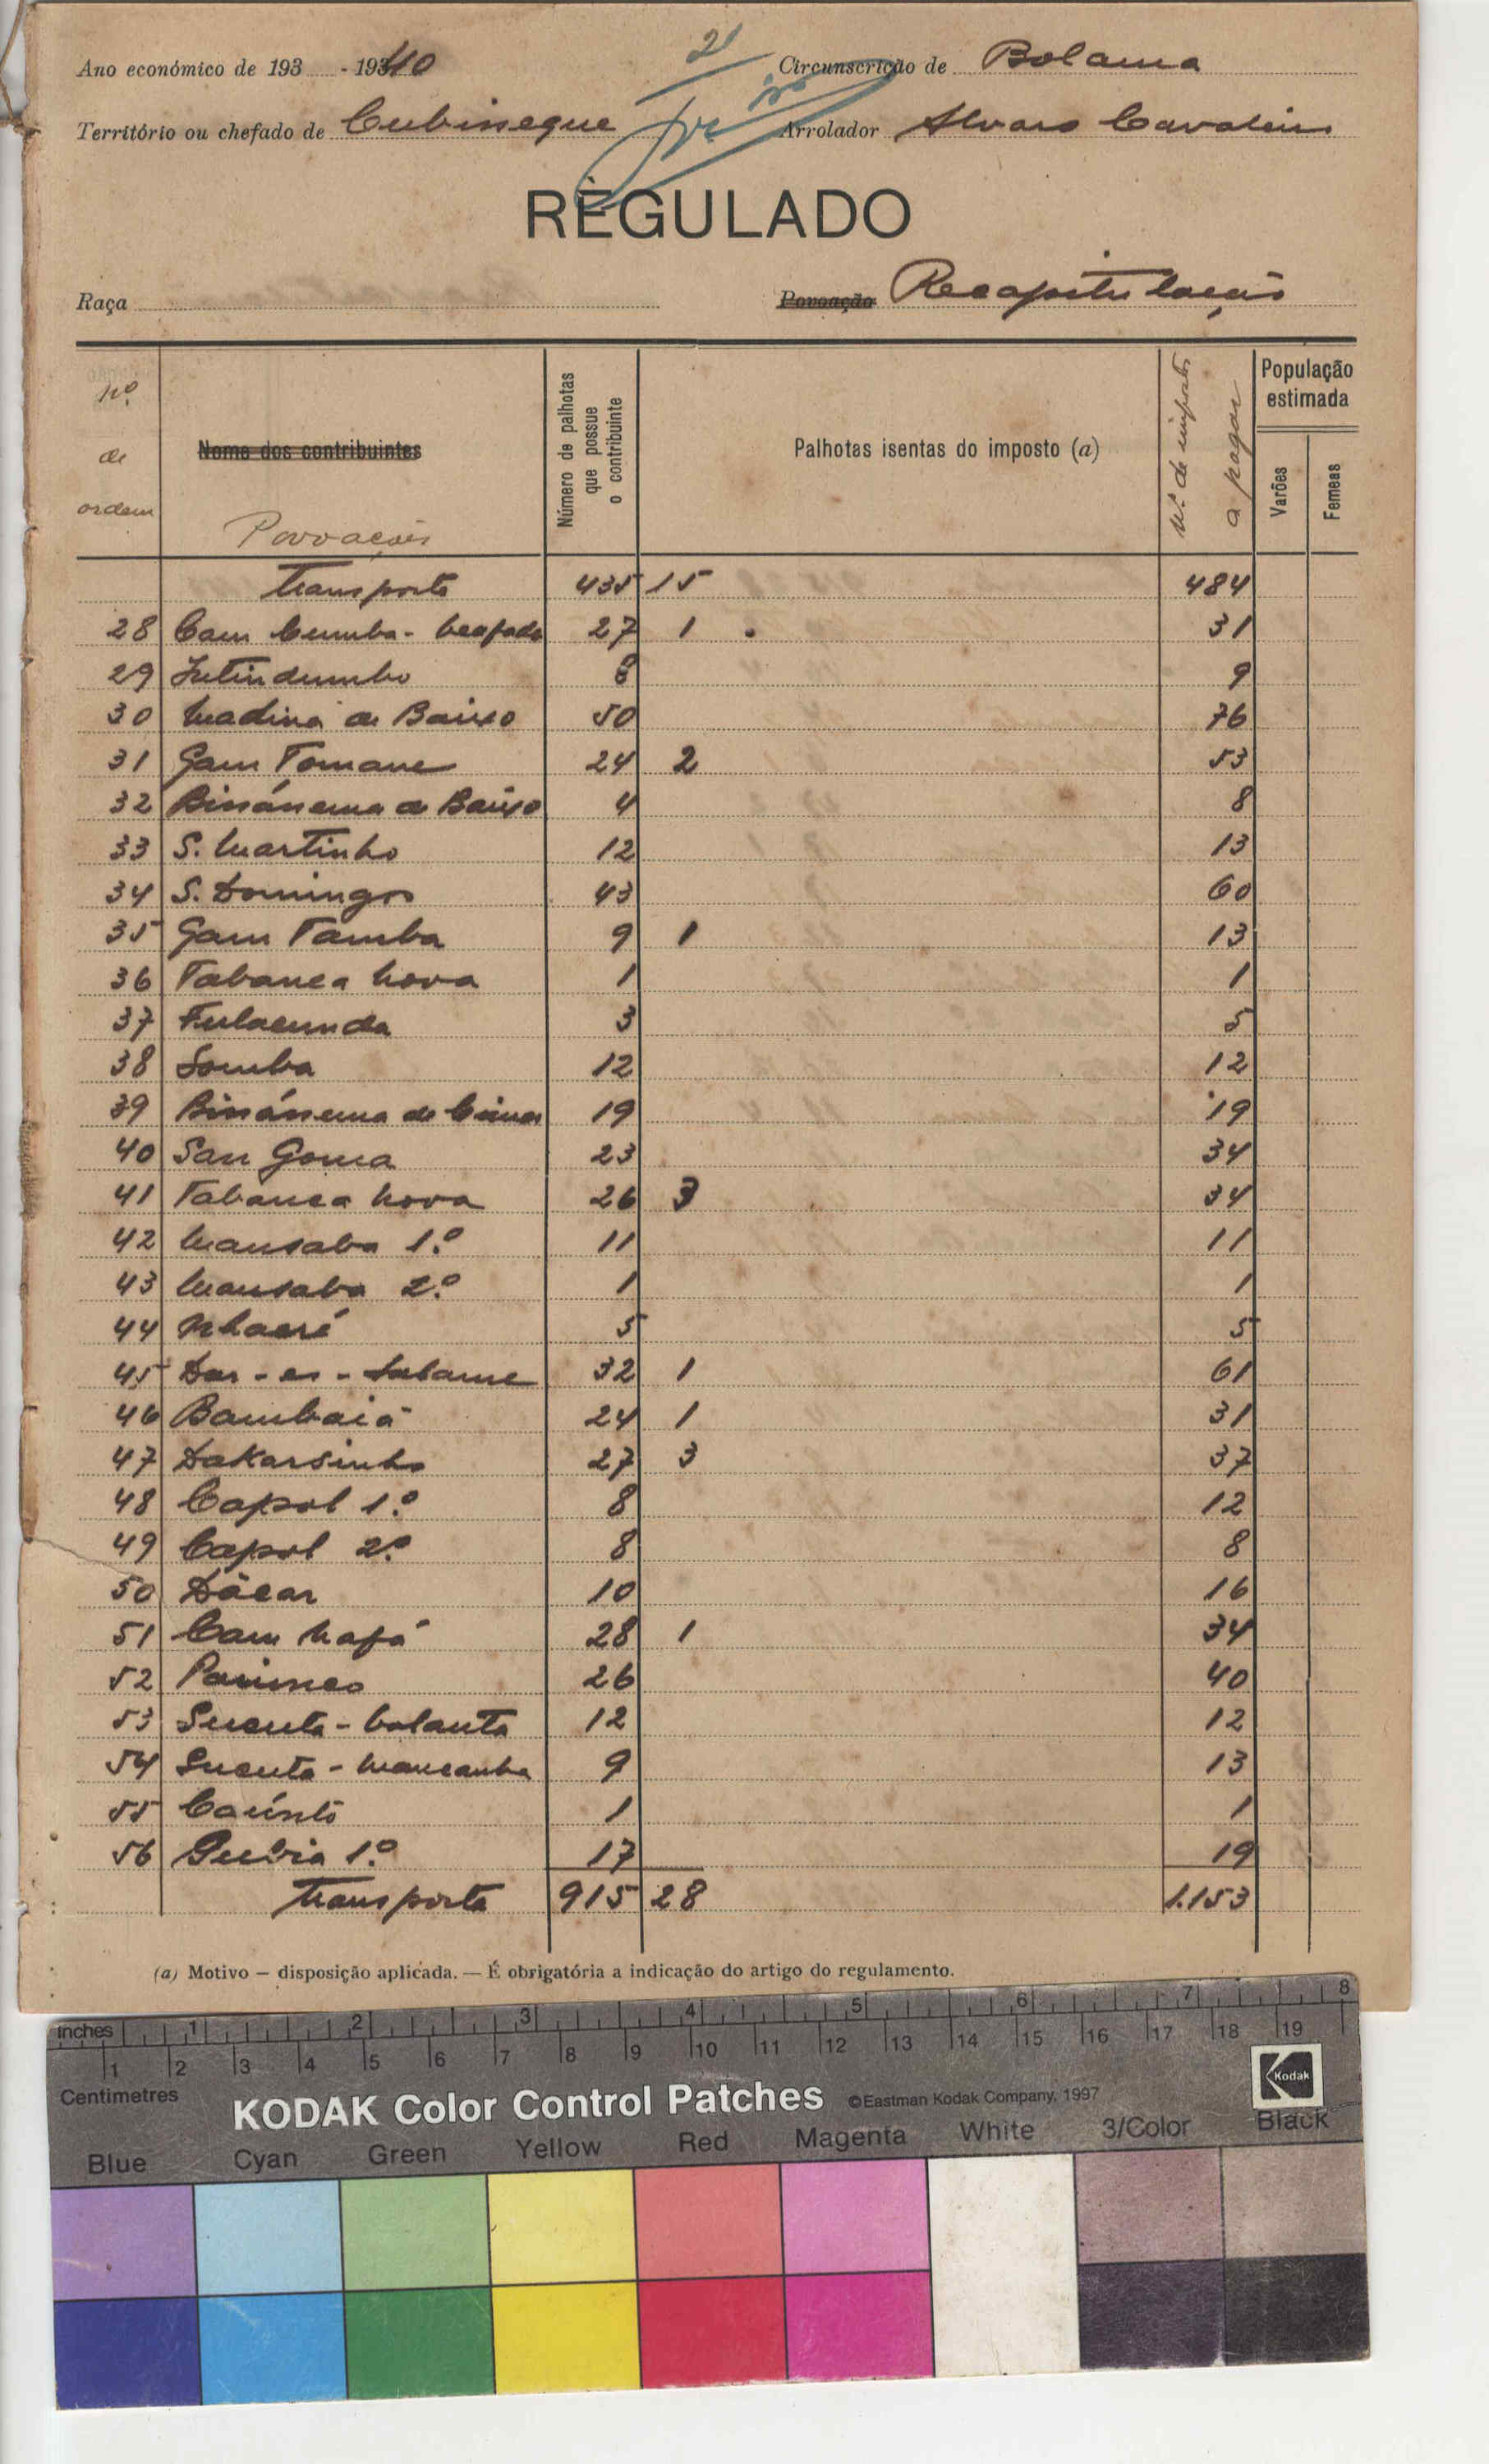 21
Ano económico de 193 - 1940 Circunscrição de Bolama
Território ou chefado de Cubisseque Arrolador Alvaro
REGULADO
Raça Povoação Recapitulação
Nº de ordem
Nome dos contribuintes
Povoações
Número de palhotas que possue o contribuinte
Palhotas isentas do imposto (a)
Nº de impostos a pagar
População estimada
Varões
Femeas
Transporte 435 15 484
28 Gam Cumba - beafada 27 1 . 31
29 8 9
30 Madina de Baixo 50 76
31 Gam Tomane 24 2 53
32 Bissássema de Baixo 4 8
33 S. Martinho 12 13
34 S. Domingos 43 60
35 Gam Tamba 9 1 13
36 Tabanca nova 1 1
37 Fulacunda 3 5
38 Somba 12 12
39 Bissássema de Cima 19 19
40 San Gouca 23 34
41 Tabanca nova 26 3 34
42 Mansaba 1.º 11 11
43 Mansaba 2.º 1 1
44 5 5
45 Dar-es-Salame 32 1 61
46 Bambaiá 24 1 31
47 Dakarsinho 27 3 37
48 Capol 1.º 8 12
49 Capol 2.º 8 8
50 Dácar 10 16
51 Gam Nafá 28 1 34
52 26 40
53 Sucuta - balanta 12 12
54 Sucuta - mancanha 9 13
55 1 1
56 Gubia 1.º 17 19
Transporte 915 28 1.153
(a) Motivo — disposição aplicada. — É obrigatória a indicação do artigo do regulamento.
inches 1 2 3 4 5 6 7 8
1 2 3 4 5 6 7 8 9 10 11 12 13 14 15 16 17 18 19
Centimetres
KODAK Color Control Patches ©Eastman Kodak Company, 1997 Kodak
Blue Cyan Green Yellow Red Magenta White 3/Color Black